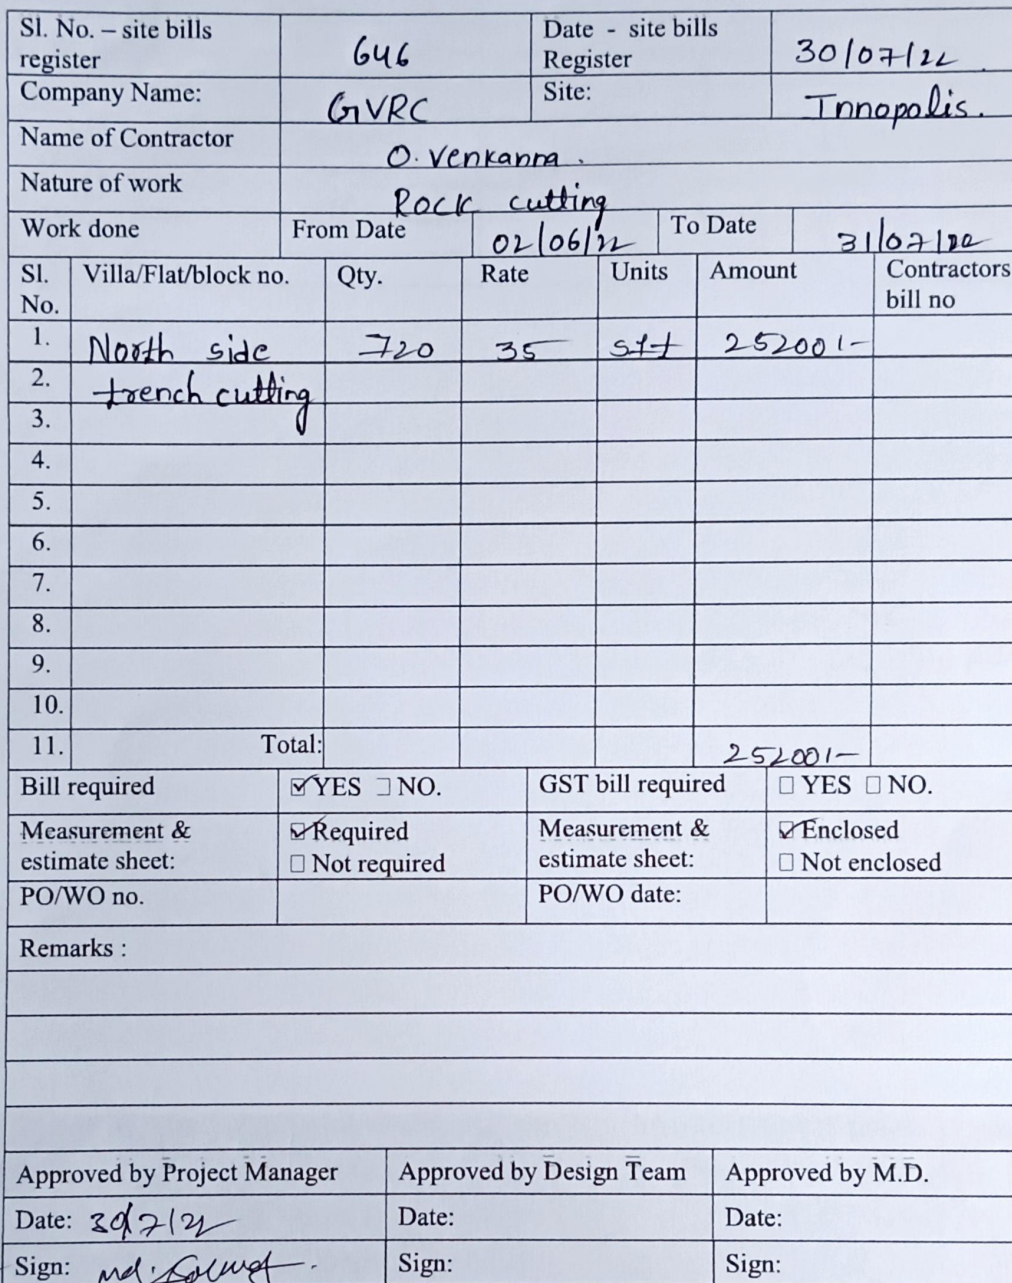 Sl. No. – site bills register 646 Date - site bills Register 30/07/22
Company Name: GVRC Site: Innopolis.
Name of Contractor O. Venkanna.
Nature of work Rock cutting
Work done From Date 02/06/22 To Date 31/07/22
Sl. No. Villa/Flat/block no. Qty. Rate Units Amount Contractors bill no
1. North side 720 35 sft 25200/-
2. trench cutting
3.
4.
5.
6.
7.
8.
9.
10.
11. Total: 25200/-
Bill required ☑ YES ☐ NO. GST bill required ☐ YES ☐ NO.
Measurement & estimate sheet: ☑ Required ☐ Not required Measurement & estimate sheet: ☑ Enclosed ☐ Not enclosed
PO/WO no. PO/WO date:
Remarks :
Approved by Project Manager Approved by Design Team Approved by M.D.
Date: 30/7/22 Date: Date:
Sign: Sign: Sign: